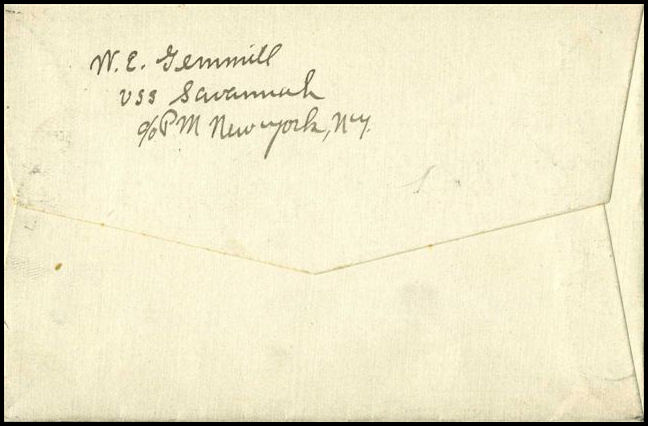 W. E. Gemmill
USS Savannah
c/o PM New York, N.Y.